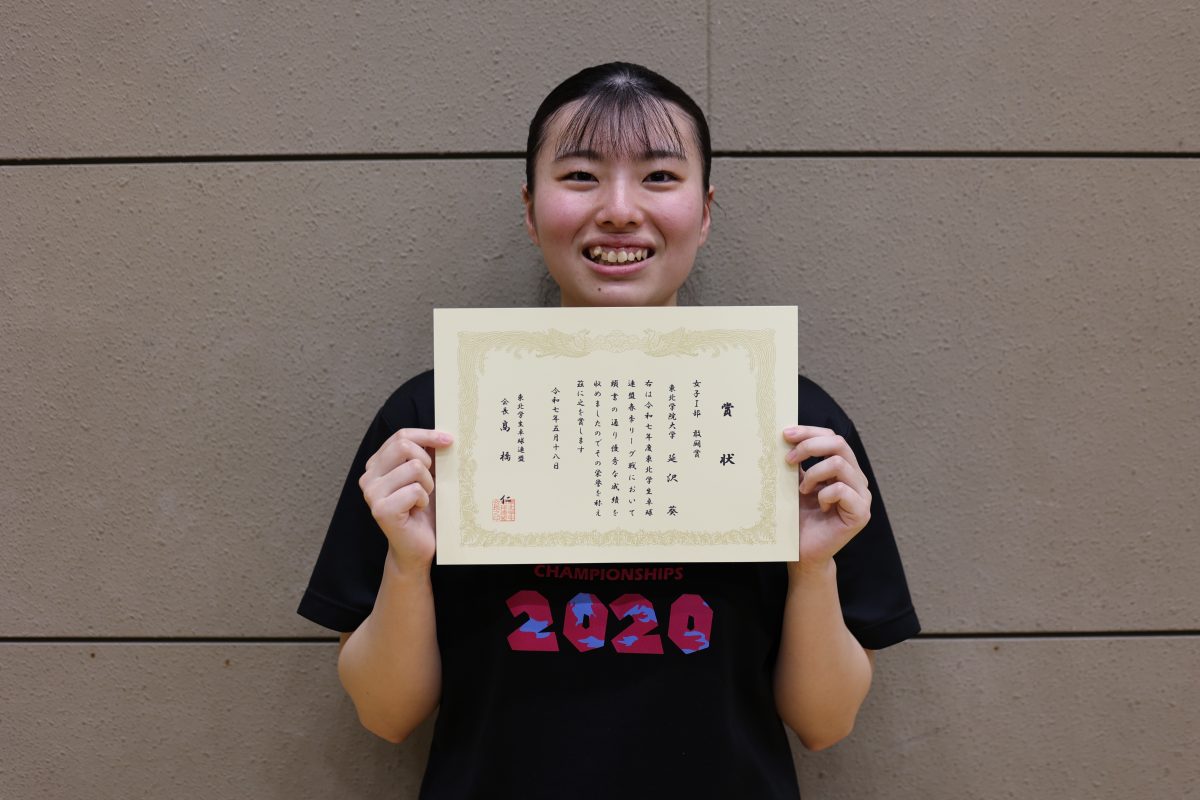 賞状
女子Ⅰ部 敢闘賞
東北学院大学 延沢 葵
右は令和七年度東北学生卓球
連盟春季リーグ戦において
頭書の通り優秀な成績を
収めましたのでその栄誉を称え
茲に之を賞します
令和七年五月十八日
東北学生卓球連盟
会長 髙橋 仁
CHAMPIONSHIPS
2020